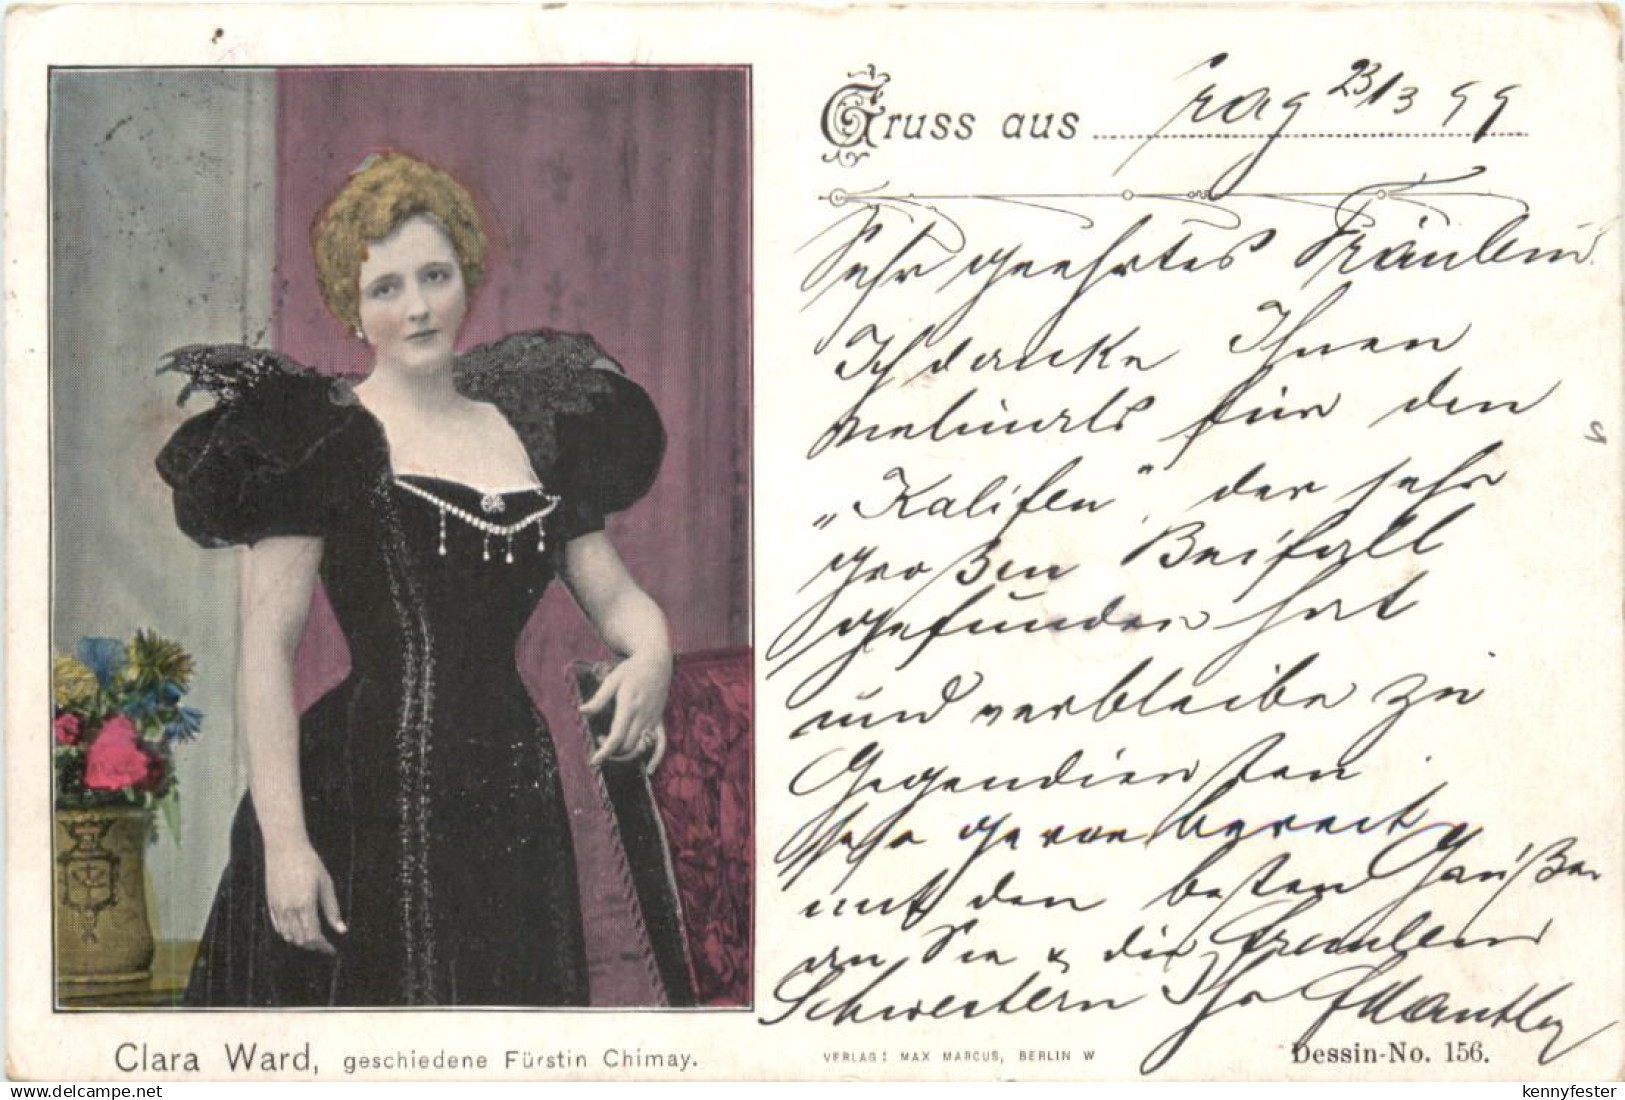 Gruss aus Prag 23/3 99
Sehr geehrtes Fräulein
Ich danke Ihnen
vielmals für den
„Kalifen“, der sehr
großen Beifall
gefunden hat
und verbleibe zu
Gegendiensten
sehr gerne bereit
mit den besten Grüßen
an Sie & die Fräulein
Schwestern Ihr
Clara Ward, geschiedene Fürstin Chimay.
VERLAG: MAX MARCUS, BERLIN W
Dessin-No. 156.
kennyfester